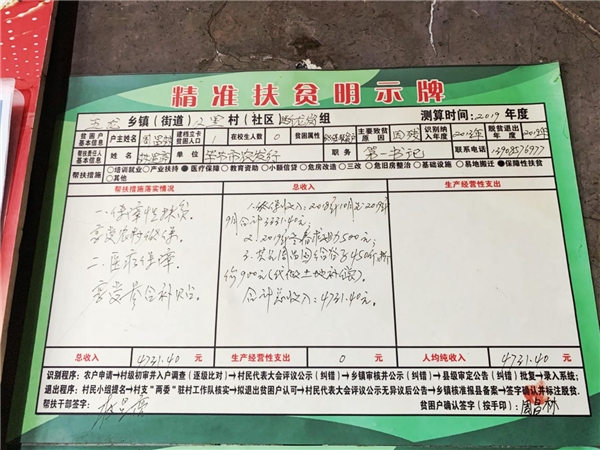 精准扶贫明示牌
乡镇（街道） 村（社区） 组 测算时间：2019 年度
贫困户基本信息 户主姓名 建档立卡贫困人口 1 在校生人数 0 贫困属性 主要致贫原因 因残 识别纳入年度 2013年 脱贫退出年度
帮扶责任人基本信息 姓名 单位 毕节市农发行 职务 第一书记 联系电话
帮扶措施 □培训就业 □产业扶持 ●医疗保障 □教育资助 □小额信贷 □危房改造 □三改 □危旧房整治 □基础设施 □易地搬迁 ●保障性扶贫
□其他
帮扶措施落实情况 总收入 生产经营性支出
一、保障性扶贫，
享受农村低保。
二、医疗保障，
享受参合补贴。
1、低保收入：2018年10月至2019年
9月合计3331.40元；
2、2019年冬春求助500元；
给900元
合计总收入：4731.40元
总收入 4731.40 元 生产经营性支出 0 元 人均纯收入 4731.40 元
识别程序：农户申请→村级初审并入户调查（逐级比对）→村民代表大会评议公示（纠错）→乡镇审核并公示（纠错）→县级审定公告（纠错）批复→录入系统；
退出程序：村民小组提名→村支“两委”驻村工作队核实→拟退出贫困户认可→村民代表大会评议公示无异议后公告→乡镇核准报县备案→签字确认并标注脱贫。
帮扶干部签字： 贫困户确认签字（按手印）：